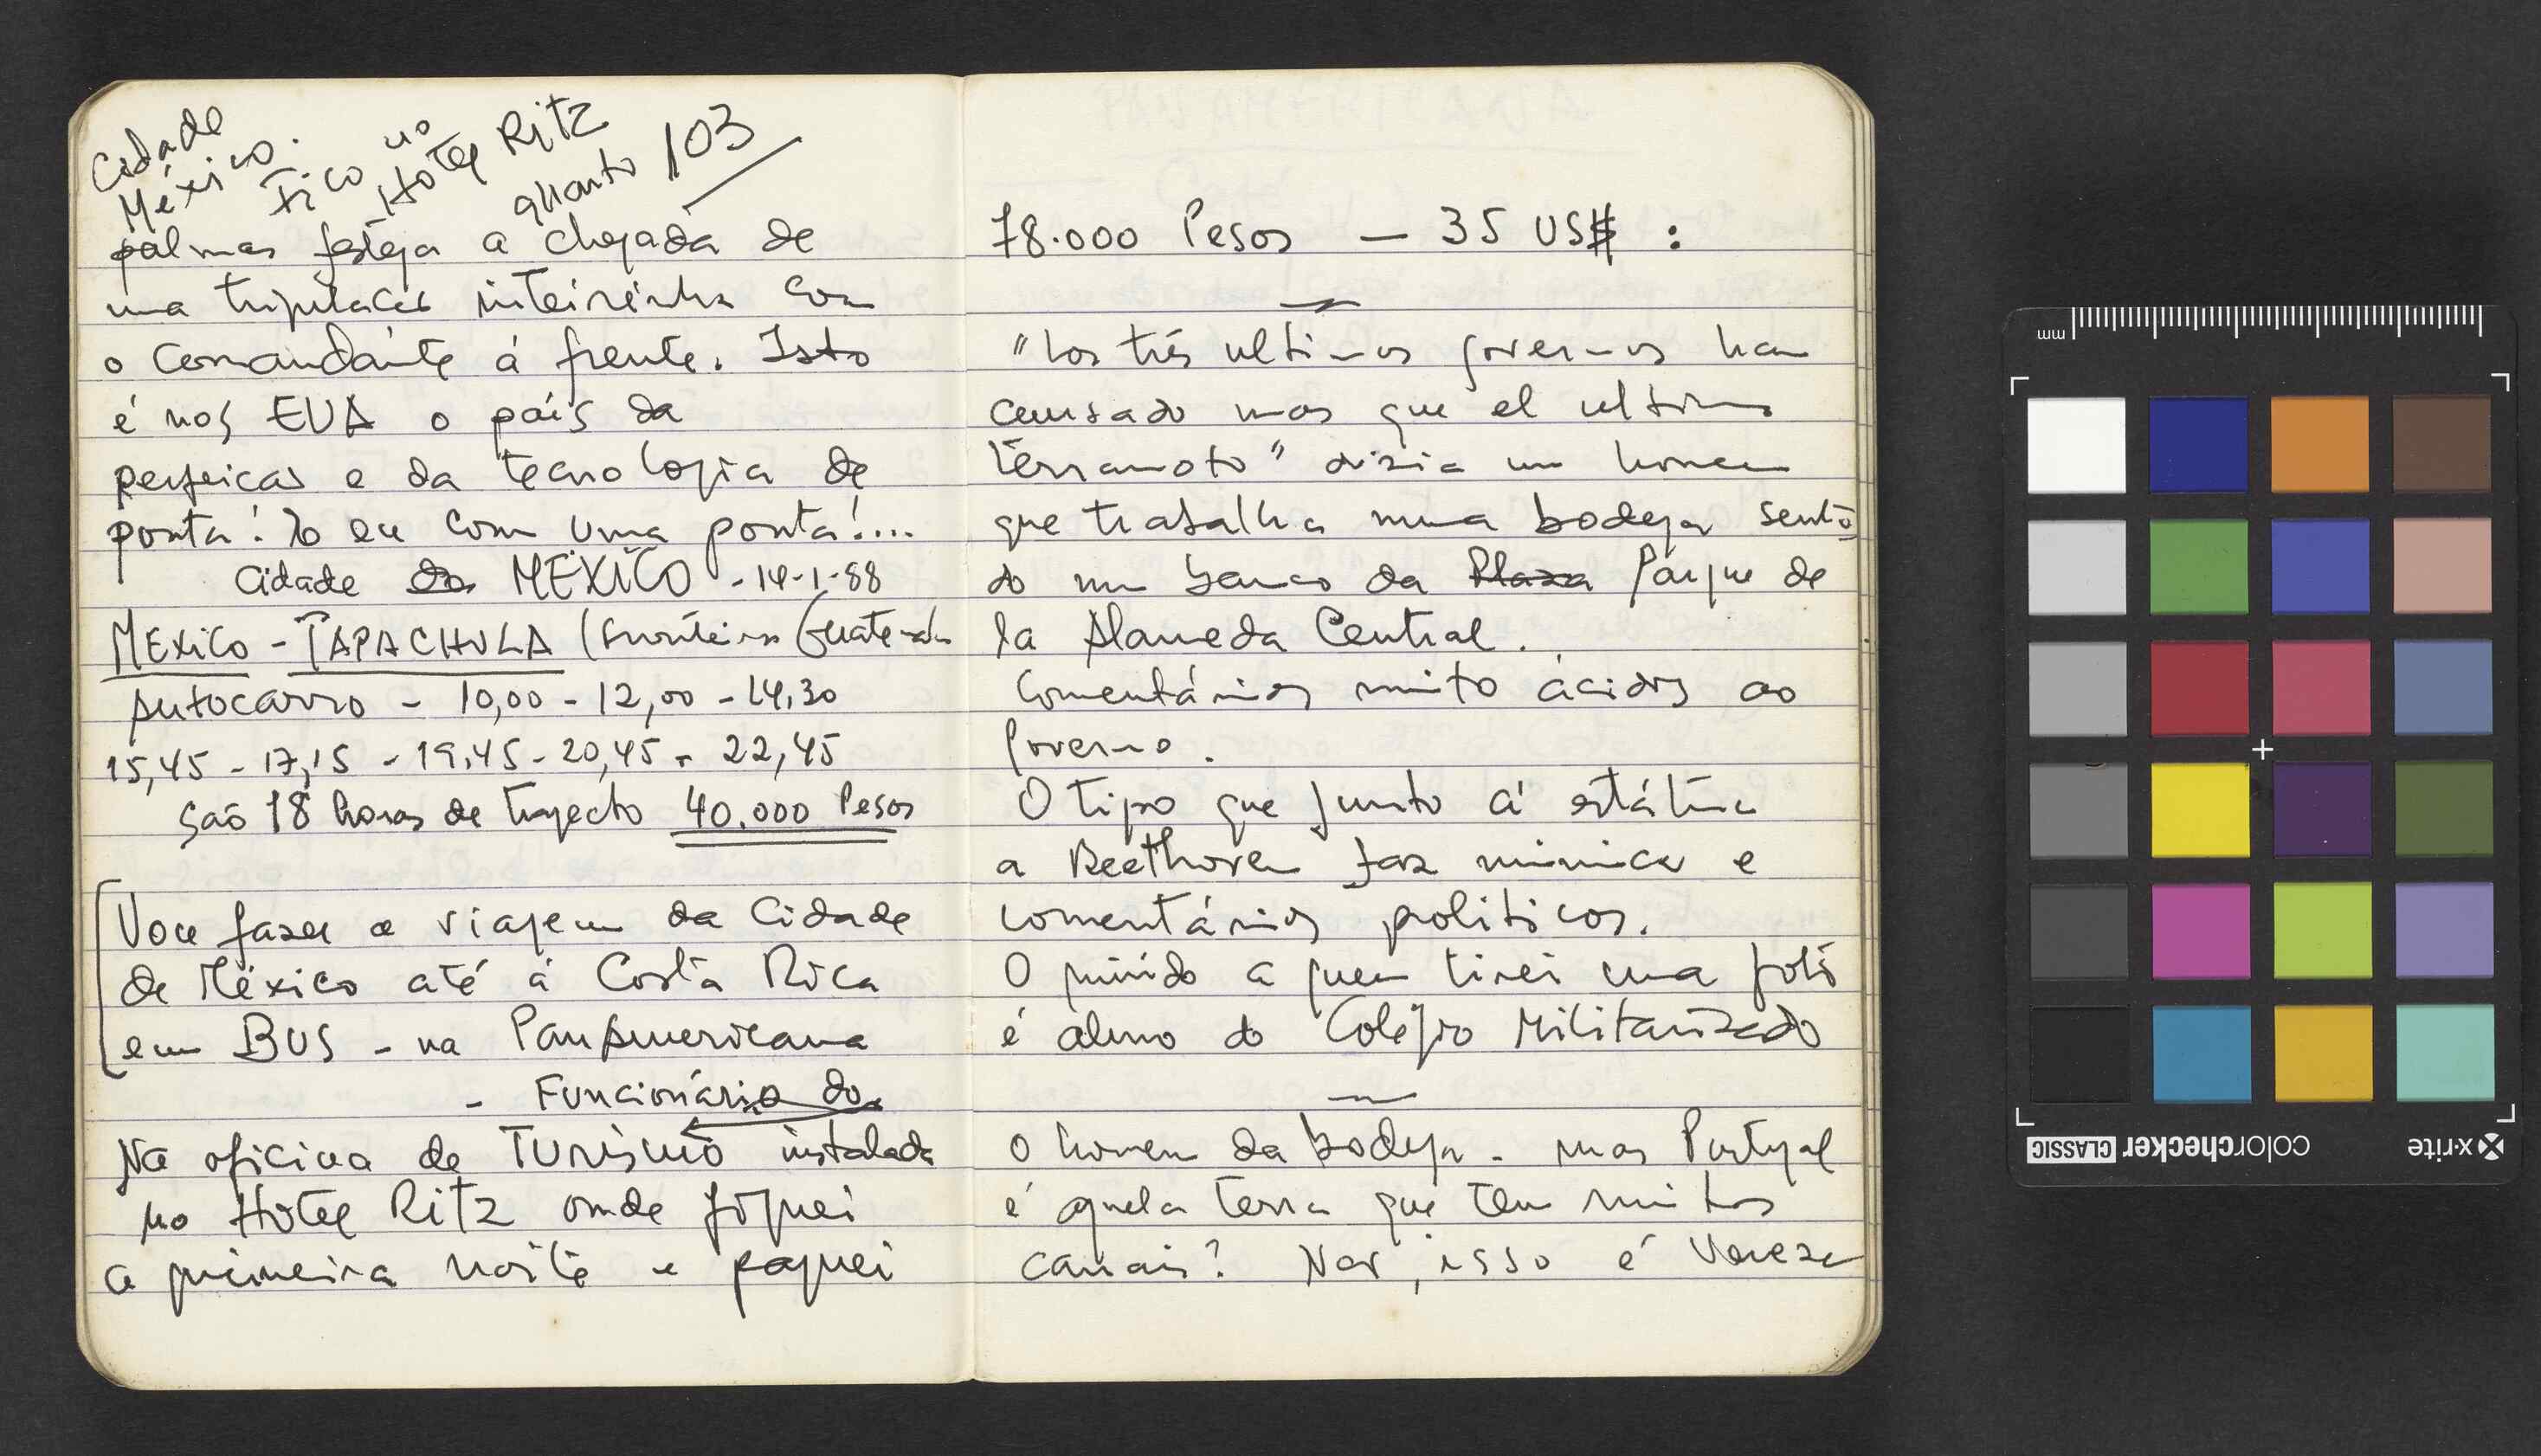 Cidade
México.
Fico no
Hotel Ritz
quarto 103
palmas festeja a chegada de
uma tripulacão inteirinha com
o comandante á frente. Isto
é nos EUA o país da
perfeicão e da tecnologia de
ponta! eu com uma ponta!...
Cidade do MÉXICO - 14-1-88
MEXICO - TAPACHULA (fronteira Guatemala
Autocarro - 10,00 - 12,00 - 14,30
15,45 - 17,15 - 19,45 - 20,45 - 22,45
São 18 horas de trajecto 40.000 Pesos
Vou fazer a viagem da Cidade
de México até á Costa Rica
em BUS - na PanAmericana
- Funcionário do
Na oficina de Turismo instalada
no Hotel Ritz onde fiquei
a primeira noite e paguei
78.000 Pesos — 35 US$ :
"Los três ultimos governos han
causado mas que el ultimo
terramoto" dizia um homem
que trabalha numa bodega senta
do num banco da Plaza Parque de
la Alameda Central.
Comentários muito ácidos ao
governo.
O tipo que junto á estátua
a Beethoven faz mimica e
comentários politicos.
O miúdo a quem tirei uma foto
é aluno do Colégio Militarizado
O homem da bodega - mas Portugal
é aquela terra que tem muitos
canais? Não, isso é Veneza
mm
x-rite
colorchecker CLASSIC